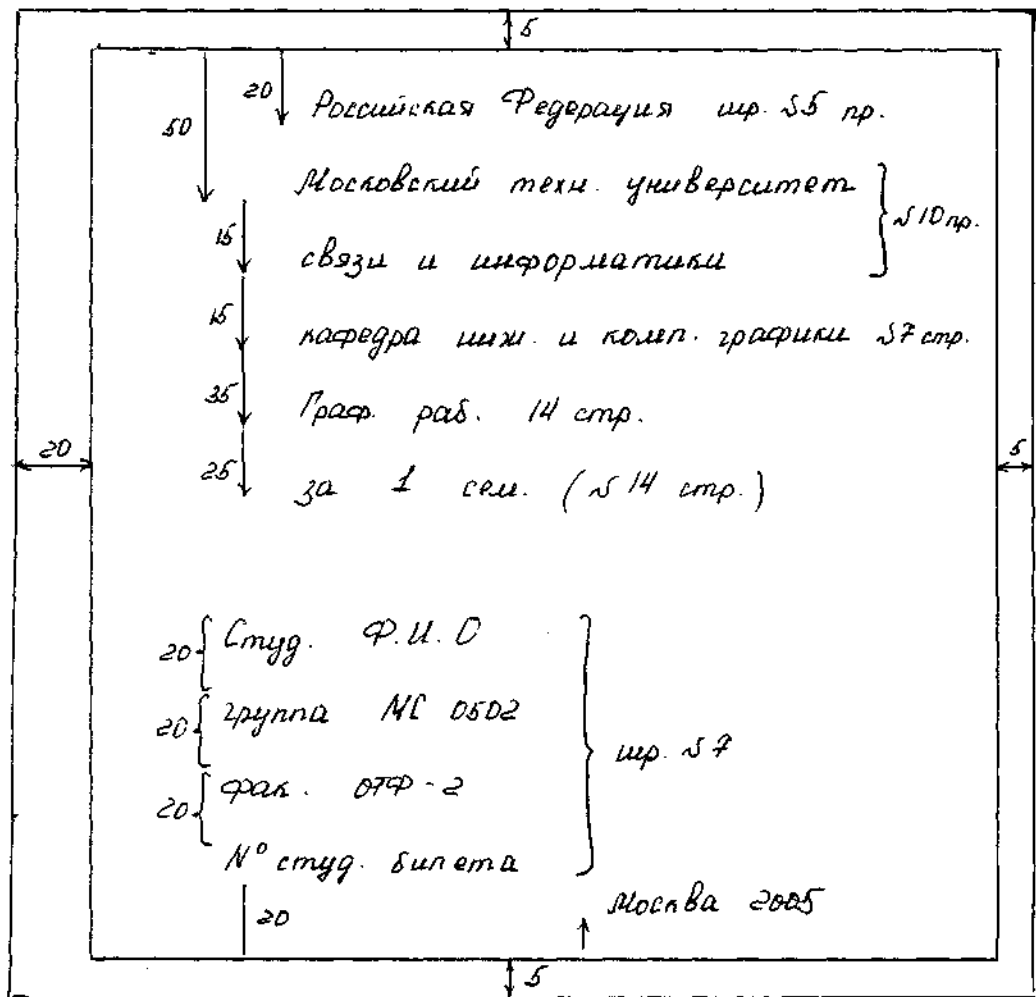 5
20 Российская Федерация шр. №5 пр.
50
Московский техн. университет
№10 пр.
15 связи и информатики
15 кафедра инж. и комп. графики №7 стр.
35 Граф. раб. 14 стр.
20
5
25 за 1 сем. (№14 стр.)
20 Студ. Ф.И.О
20 группа МС 0502
шр. №7
20 фак. ОТФ-2
№ студ. билета
20
Москва 2005
5